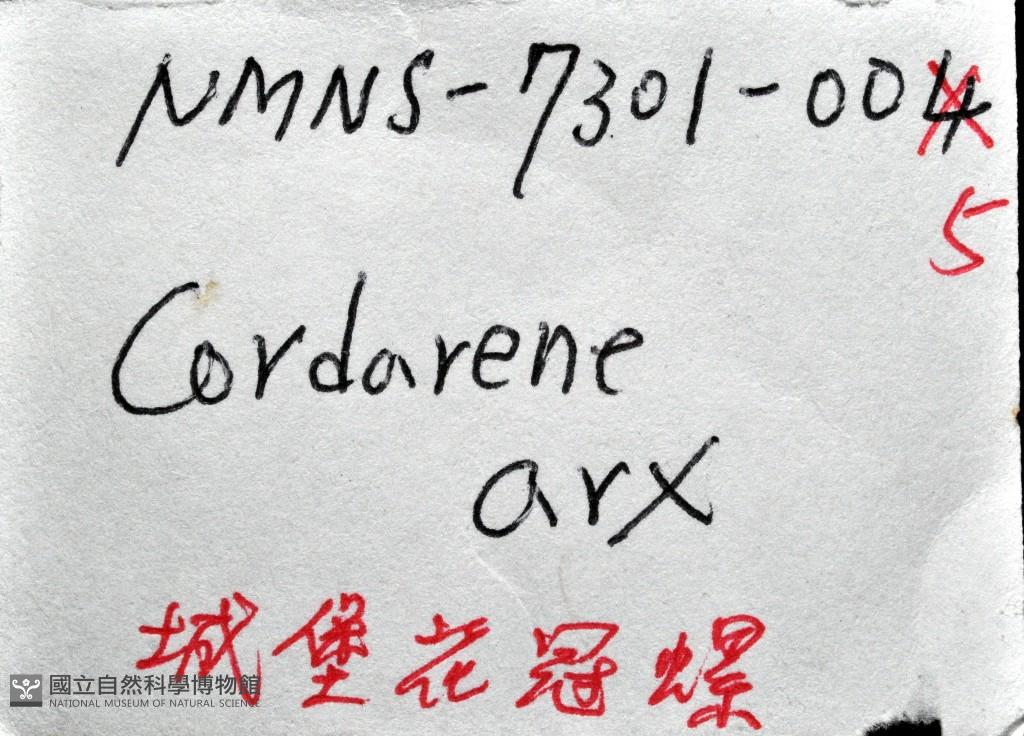 NMNS-7301-004
5
Cordarene
arx
城堡花冠螺
國立自然科學博物館
NATIONAL MUSEUM OF NATURAL SCIENCE